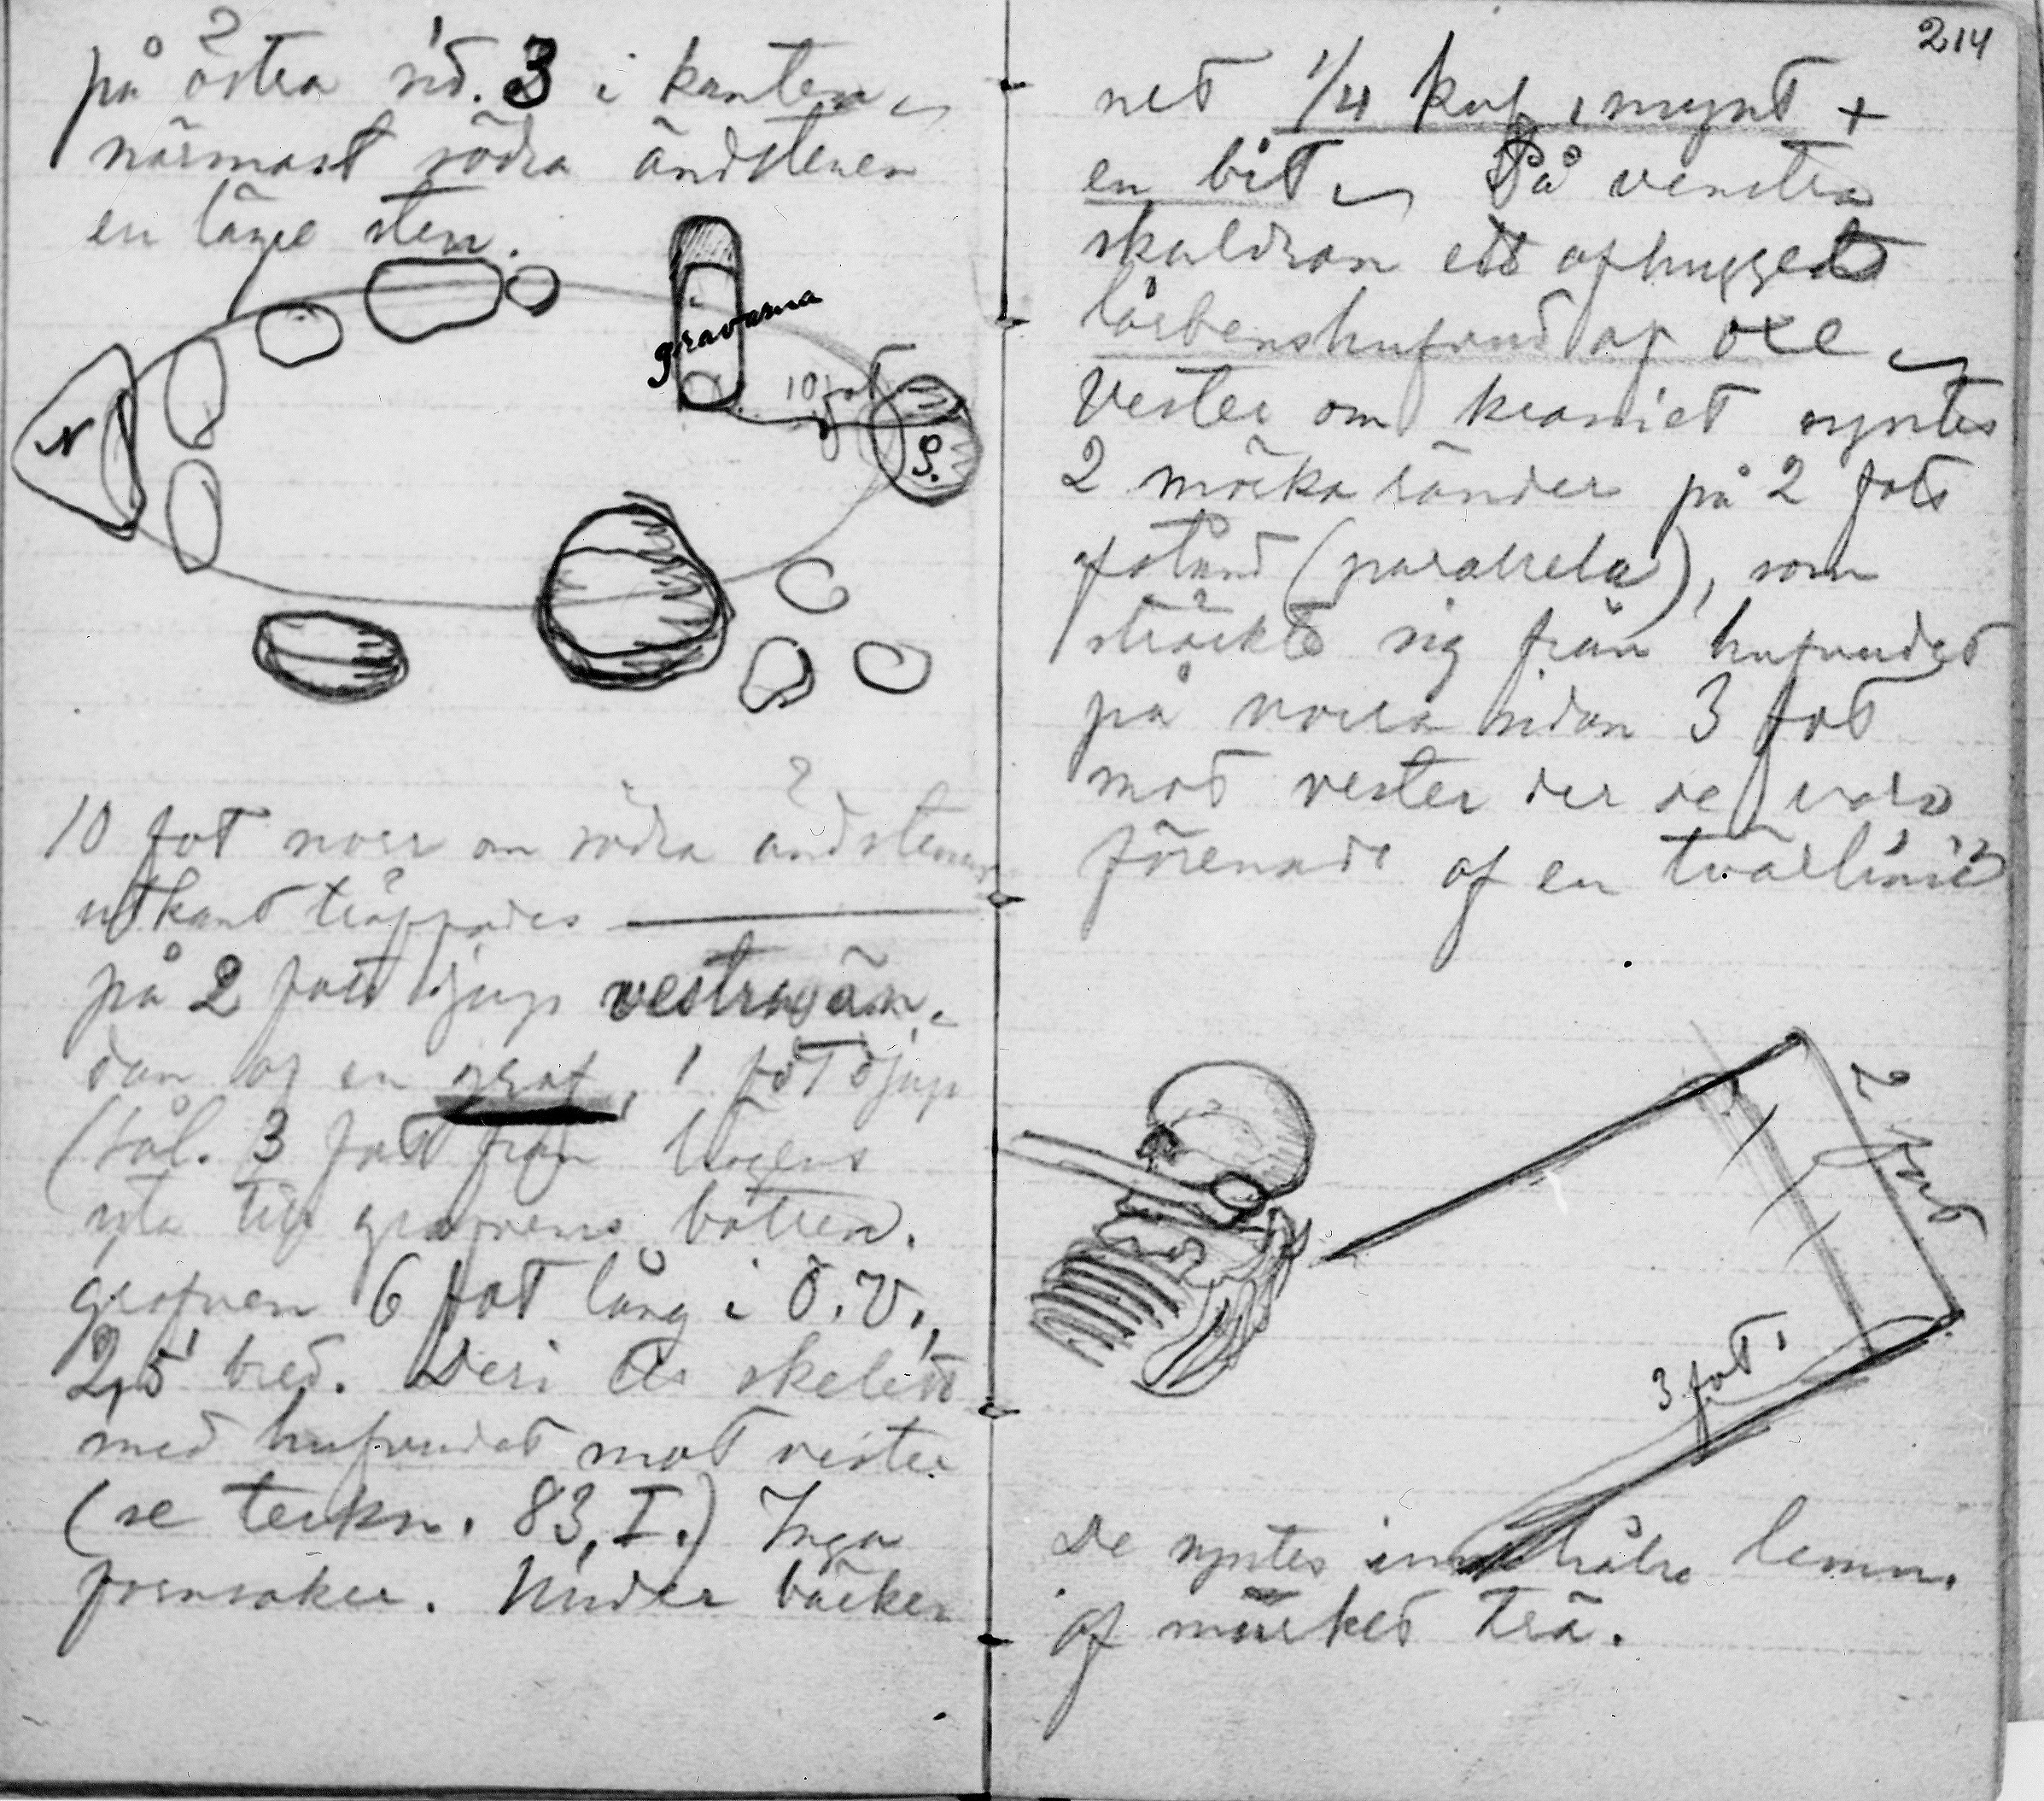 på östra sid. 3 i kanten
närmast södra ändstenen
en läng sten.
gravarna
10 fot
N
S.
10 fot norr om södra ändstenens
utkant träffades
på 2 fots djup vestra än-
dan af en graf, 1 fot djup
(sål. 3 fot från högens
yta till grafvens botten.
grafven 6 fot lång i Ö.V.,
2,5' bred. Deri ett skelett
med hufvudet mot vester
(se teckn. 83, I.) Inga
fornsaker. Under bäcke
214
net 1/4 kuf. mynt +
en bit På venstra
skuldran ett afhugget
lårbenshufvud af oxe
Vester om kraniet syntes
2 mörka ränder på 2 fots
afstånd (paralella), som
sträckte sig från hufvudet
på norra sidan 3 fot
mot vester der de voro
förenade af en tvärlinie
2 fot
3 fot
De syntes innehålla lemn.
af murket trä.